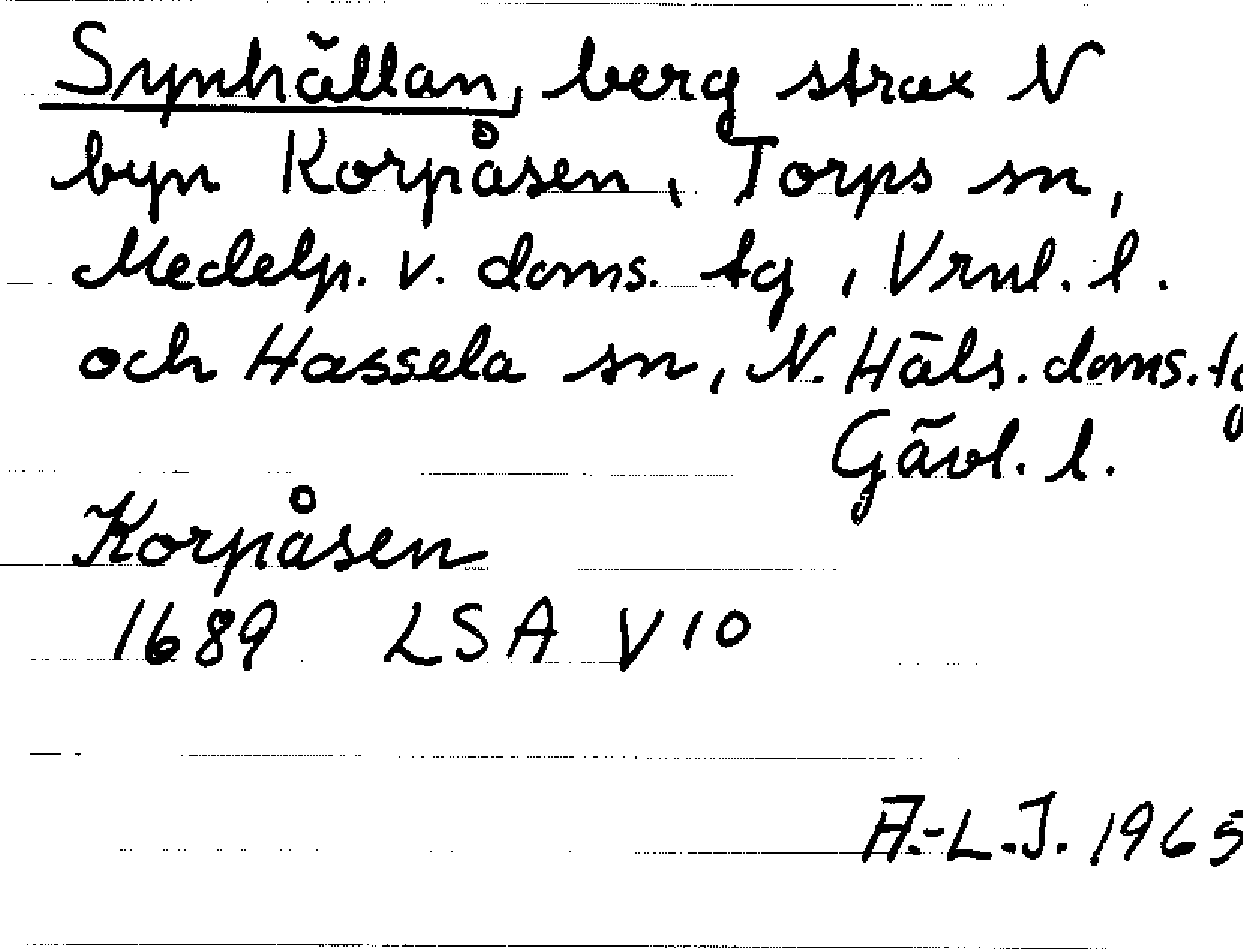 Synhällan, berg strax N
byn Korpåsen, Torps sn,
Medelp. v. doms. tg, Vrnl. l.
och Hassela sn, N. Häls. doms. tg
Gävl. l.
Korpåsen
1689 LSA V10
A.-L.J. 1965